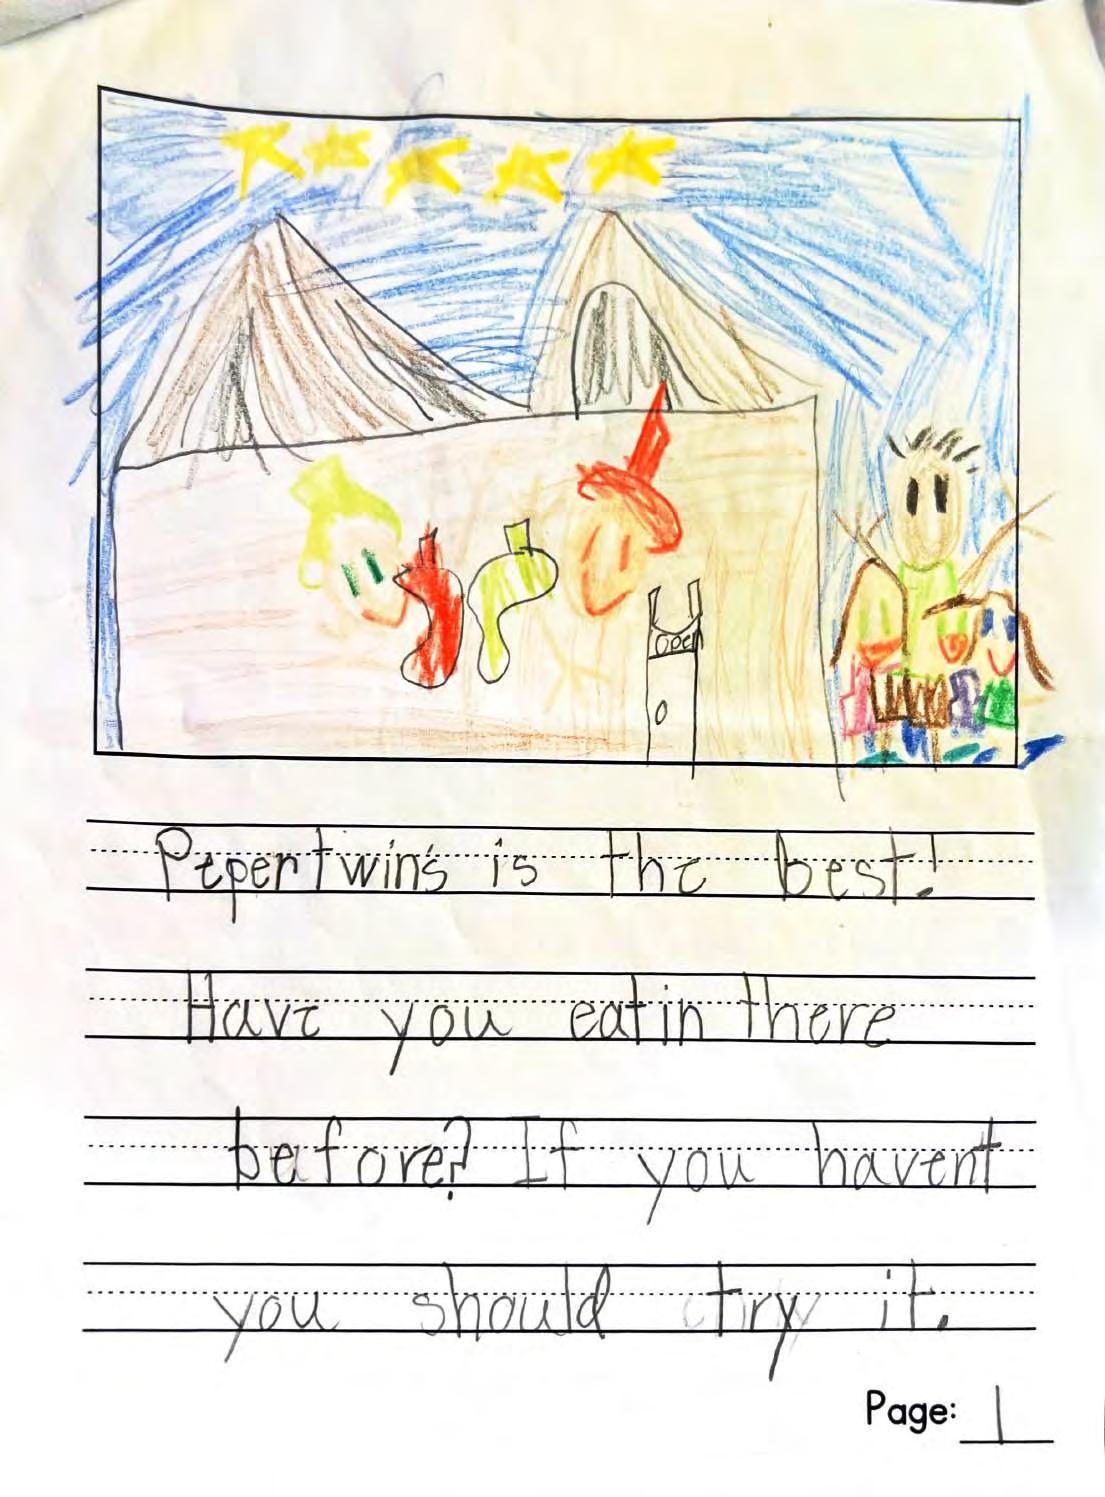 open
Pepertwin's is the best!
Have you eatin there
before? If you havent
you should try it.
Page: 1